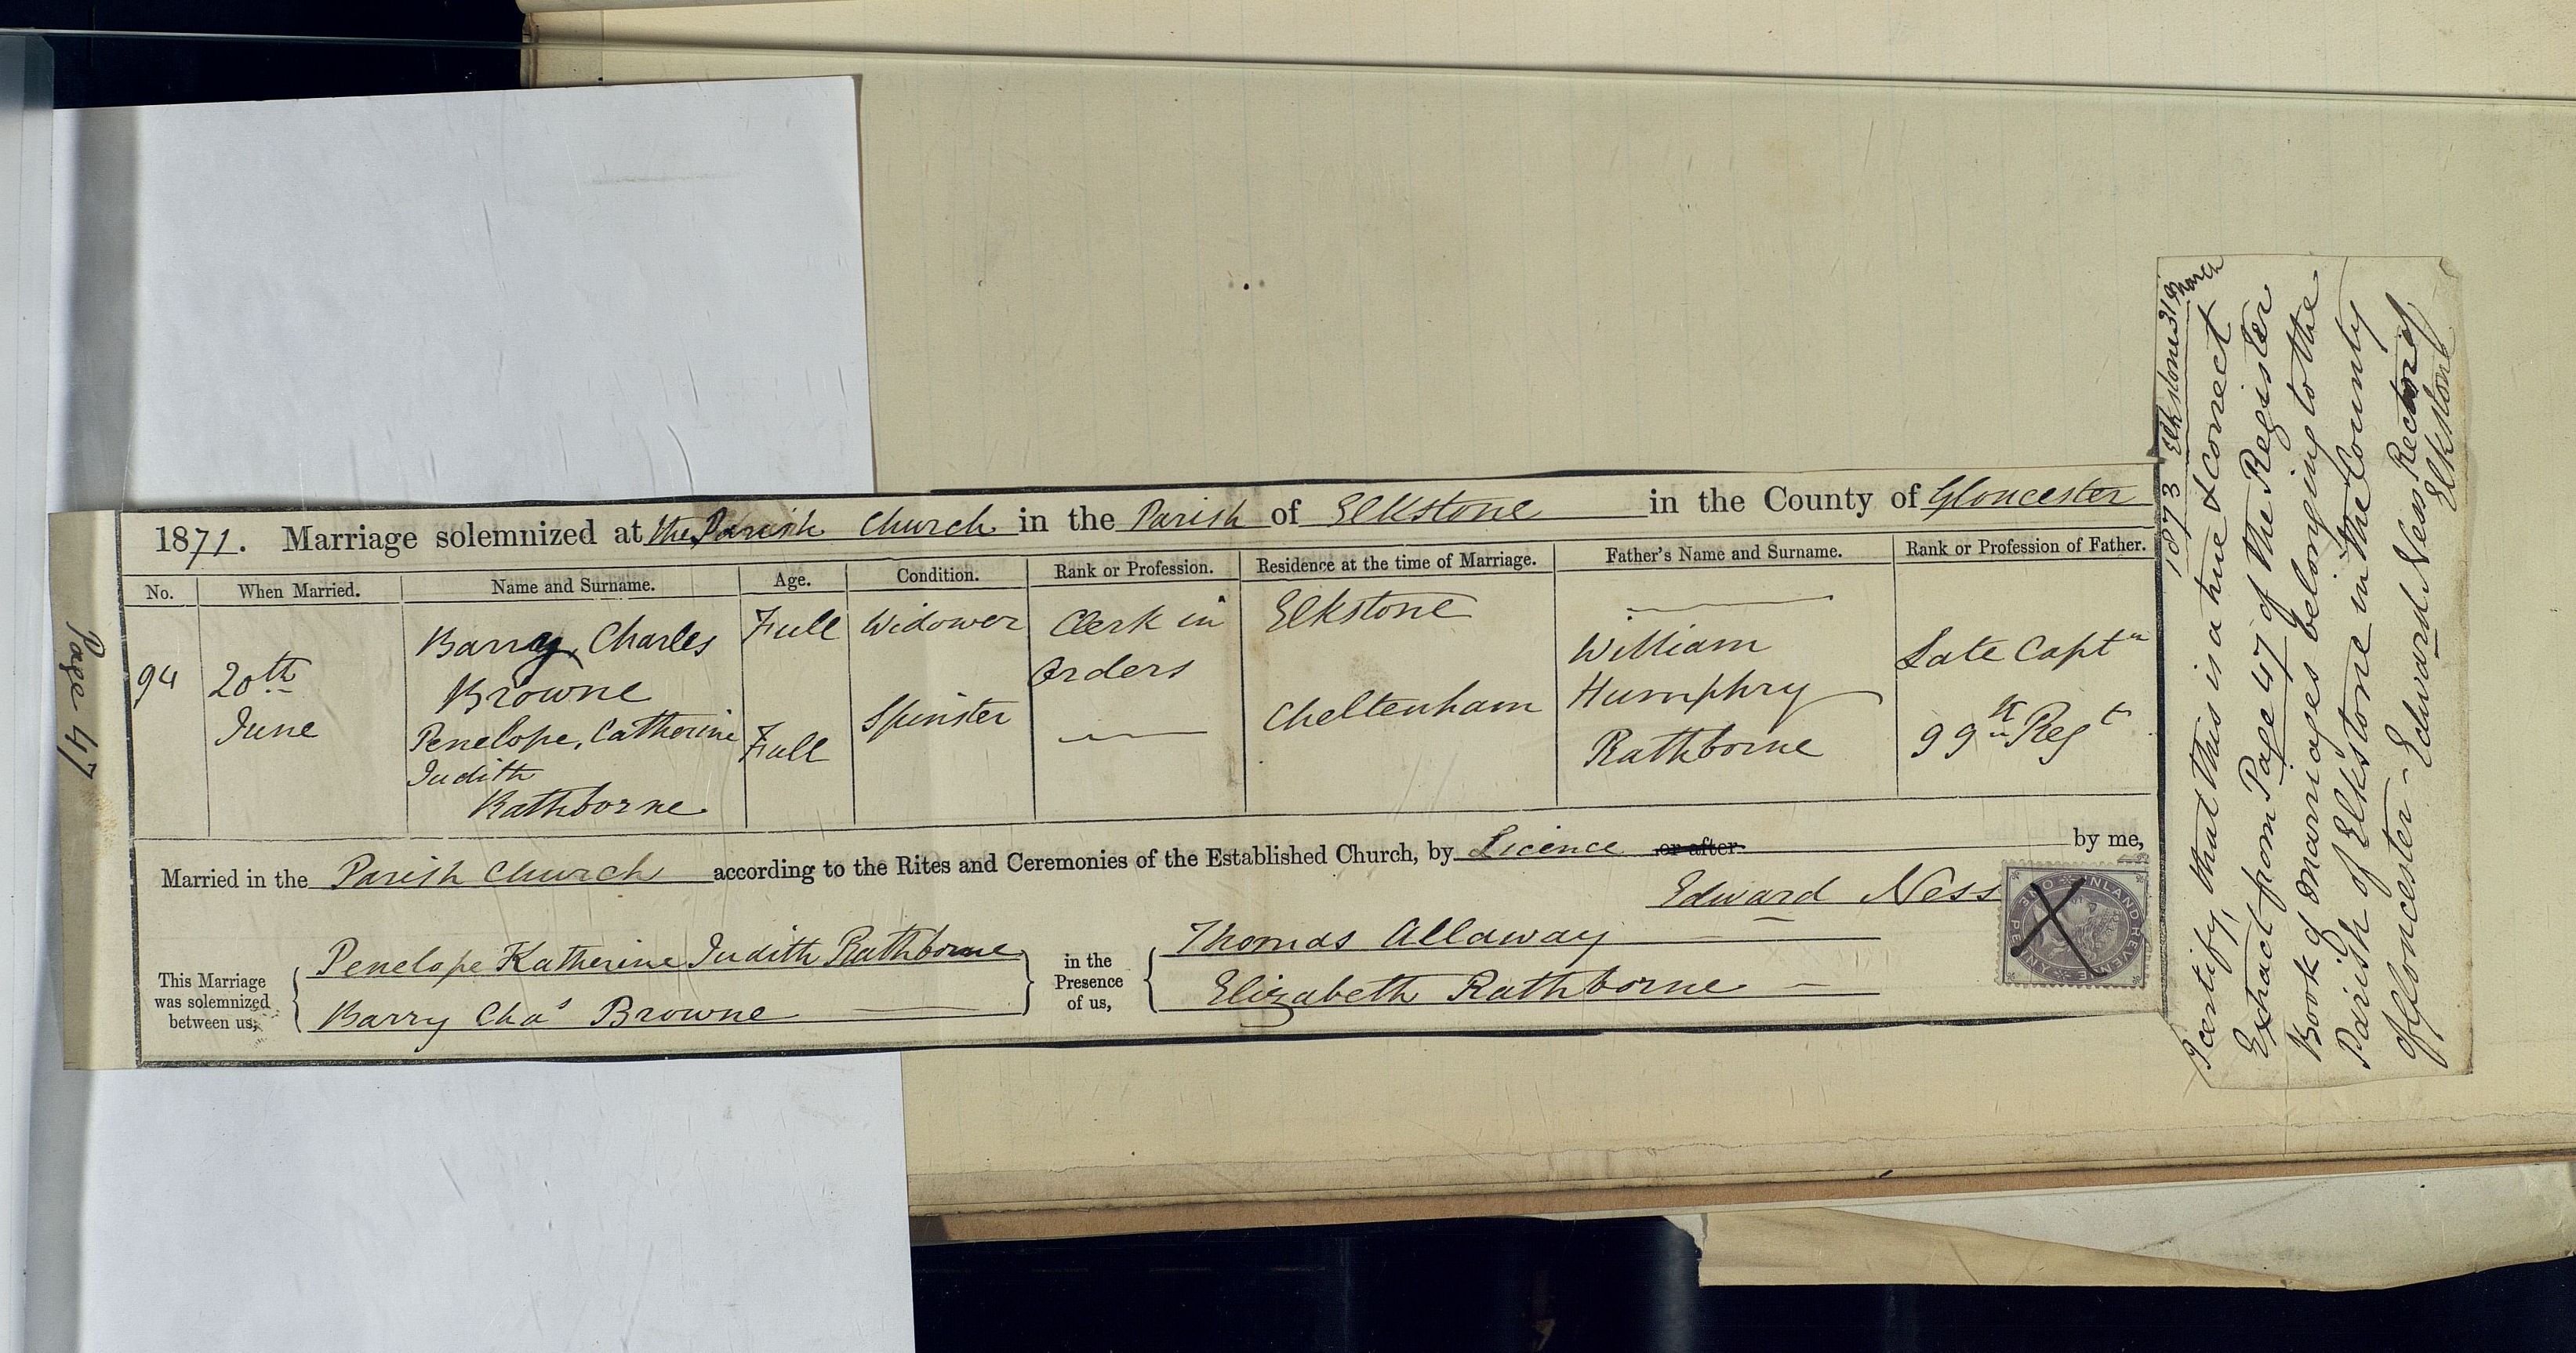 Page 47
1871. Marriage solemnized at the Parish Church in the Parish of Elkstone in the County of Gloucester
No. When Married. Name and Surname. Age. Condition. Rank or Profession. Residence at the time of Marriage. Father's Name and Surname. Rank or Profession of Father.
94 20th June
Barry, Charles Browne Full Widower Clerk in Orders Elkstone —
Penelope, Catherine Judith Rathborne Full Spinster — Cheltenham William Humphry Rathborne Late Captn 99th Regt
Married in the Parish Church according to the Rites and Ceremonies of the Established Church, by Licence or after by me,
Edward Ness
This Marriage was solemnized between us,
Penelope Katherine Judith Rathborne
Barry Chas Browne
in the Presence of us,
Thomas Allaway
Elizabeth Rathborne
INLAND REVENUE ONE PENNY
1873 Elkstone 31 March
I certify, that this is a true & correct
Extract from Page 47 of the Register
Book of Marriages belonging to the
Parish of Elkstone in the County
of Gloncester - Edward Ness Rector of
Elkstone